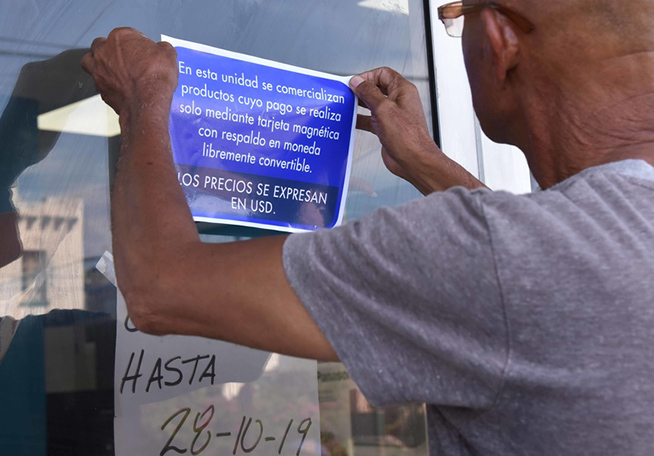 En esta unidad se comercializan
productos cuyo pago se realiza
solo mediante tarjeta magnética
con respaldo en moneda
libremente convertible.
LOS PRECIOS SE EXPRESAN
EN USD.
HASTA
28-10-19